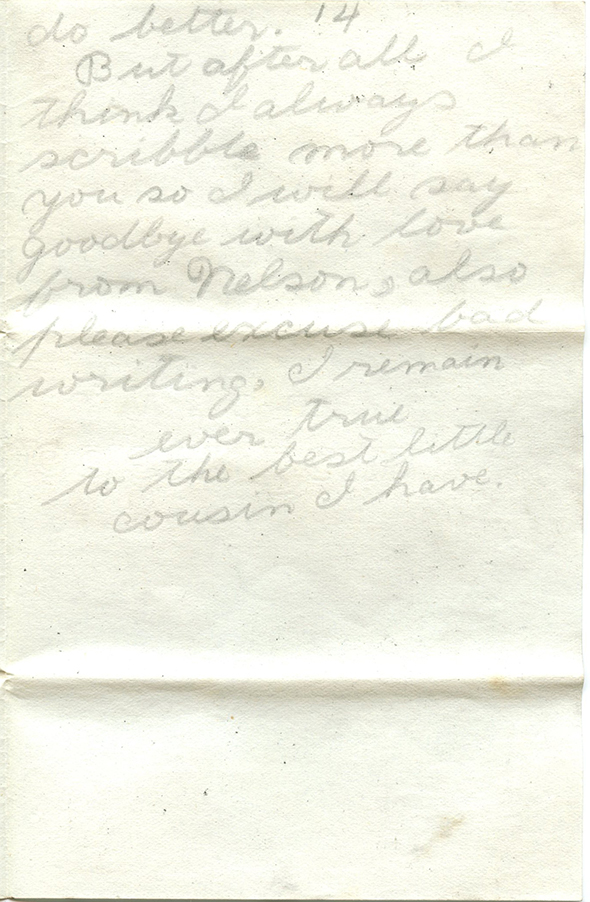 do better. 14
But after all I
think I always
scribble more than
you so I will say
goodbye with love
from Nelson, also
please excuse bad
writing. I remain
ever true
to the best little
cousin I have.